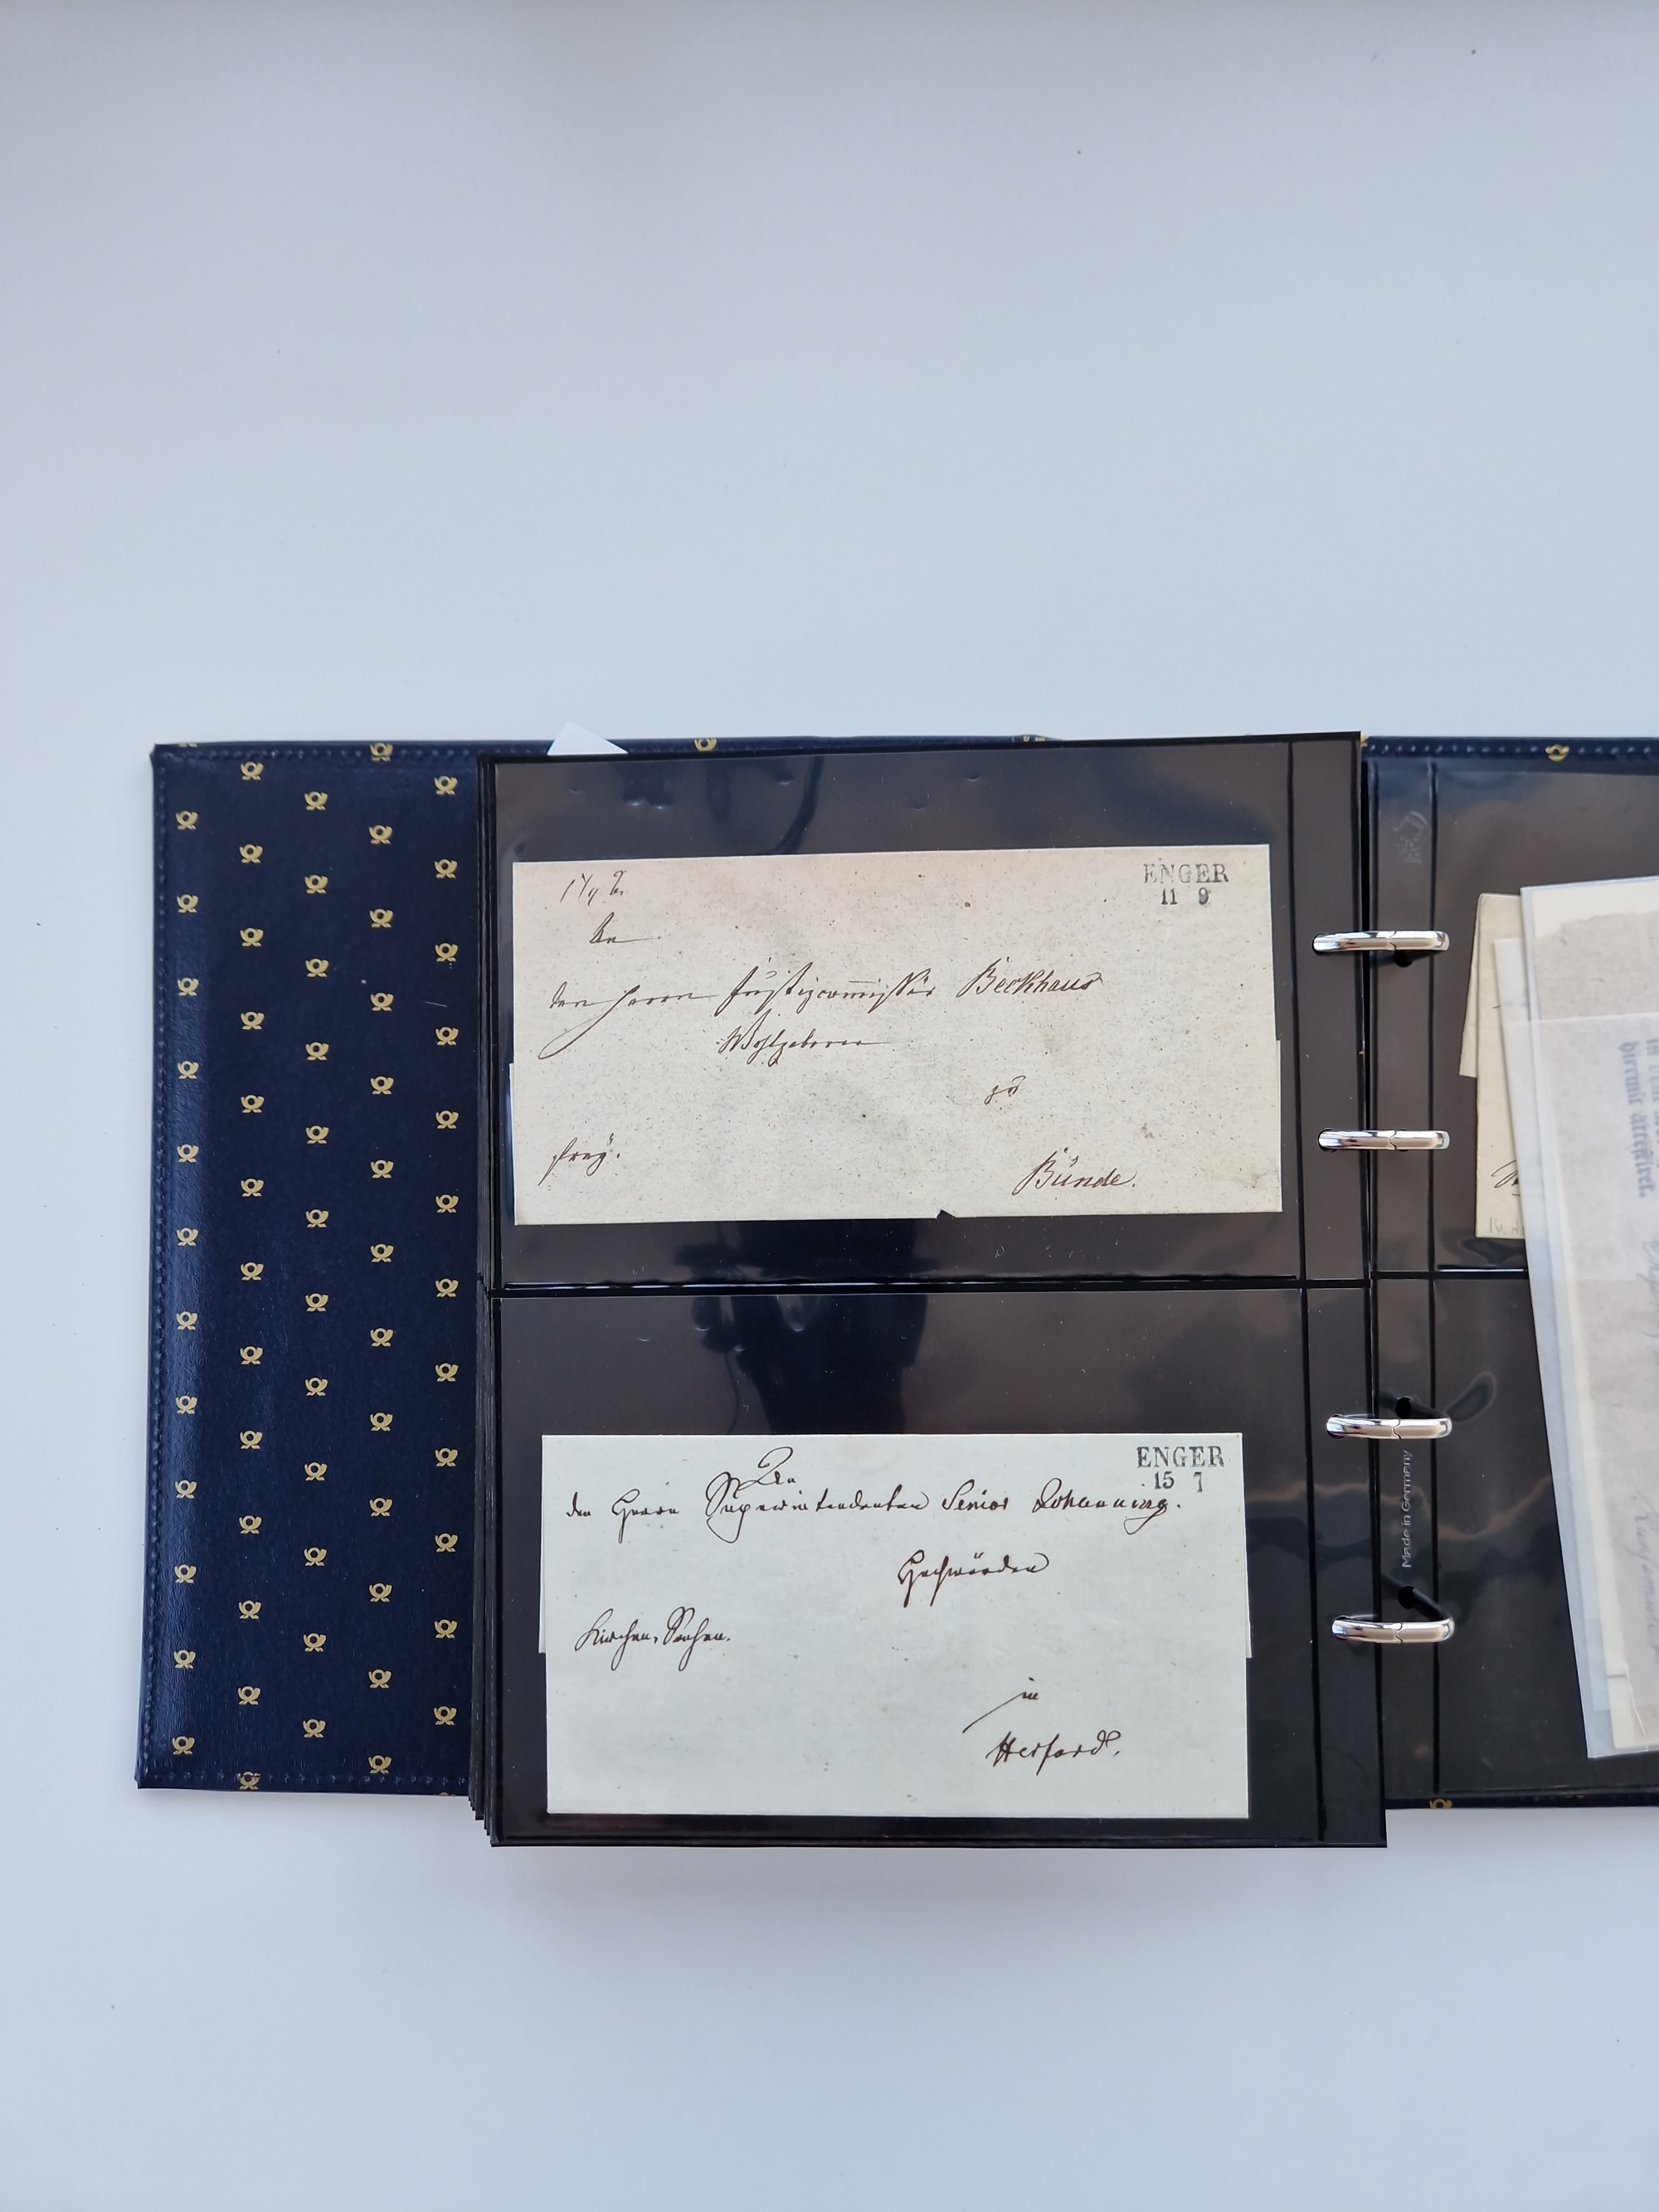 ENGER
11 9
An
den Herrn Justizcommissär Beckhaus
Wohlgeboren
zu
frey.
Bünde.
ENGER
15 7
An
den Herrn Superintendenten Senior Johanning.
Hochwürden
Kirchen-Sachen.
in
Herford.
Made in Germany
hiermit arrestiret.